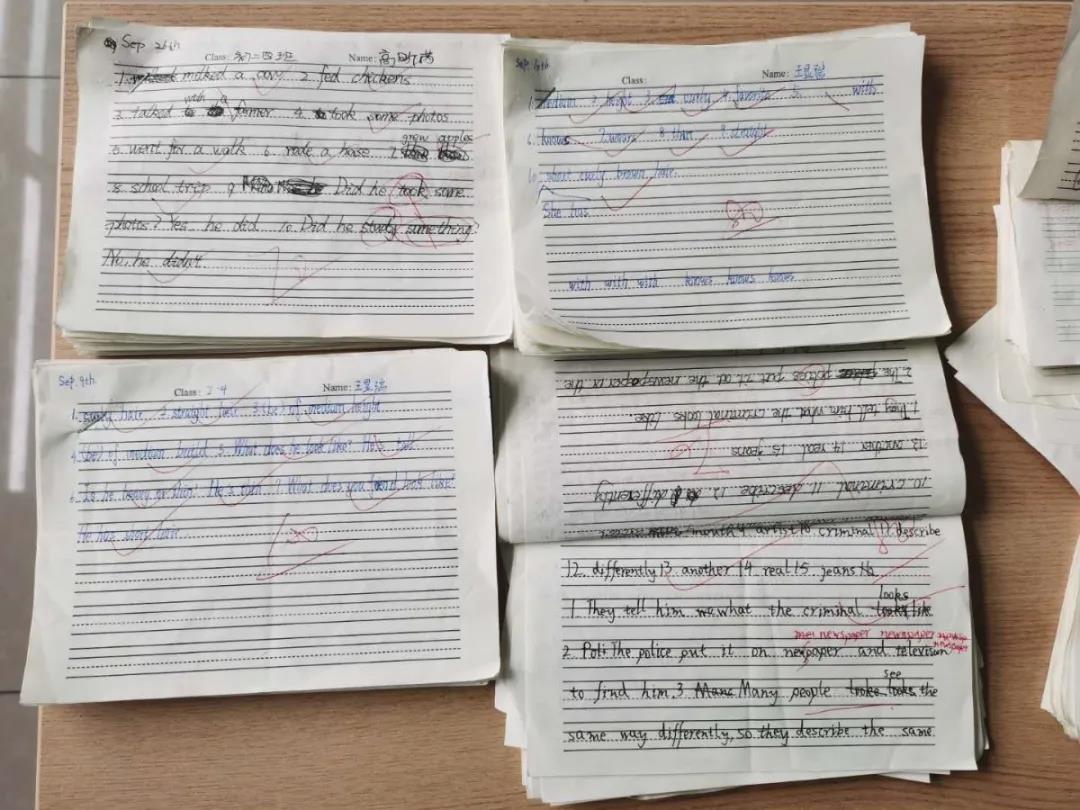 Sep. 26th
Class: 初二四班 Name:
1. milked a cow 2. fed chickens
3. talked with a farmer 4. took some photos
5. went for a walk 6. rode a horse 7. grew apples
8. school trip 9. Did he took some
photos? Yes he did. 10. Did he study something?
No, he didn't.
Class: Name: 王显强
1. medium 2. height 3. curly 4. favorite 5. with
6. knows 7. wears 8. thin 9. straight
10. short curly brown hair.
She has
80
with with with knows knows knows
Sep. 9th
Class: 2-4 Name: 王显强
1. curly hair 2. straight hair 3. (be) of medium height
4. (be) of medium build 5. What does he look like? He's tall
6. Is he heavy or thin? He's thin. 7. What does you friend look like?
He has
100
2. The polices put it out the newspaper or the
1. They tell him what the criminal looks like.
13. another 14. real 15. jeans
10. criminal 11. describe 12. differently
mouth 9. artist 10. criminal 11. describe
12. differently 13. another 14. real 15. jeans
looks
1. They tell him what the criminal like
newspaper newspaper
newspaper
2. The police put it on newpaper and television
see
to find him. 3. Many people the
same way differently, so they describe the same